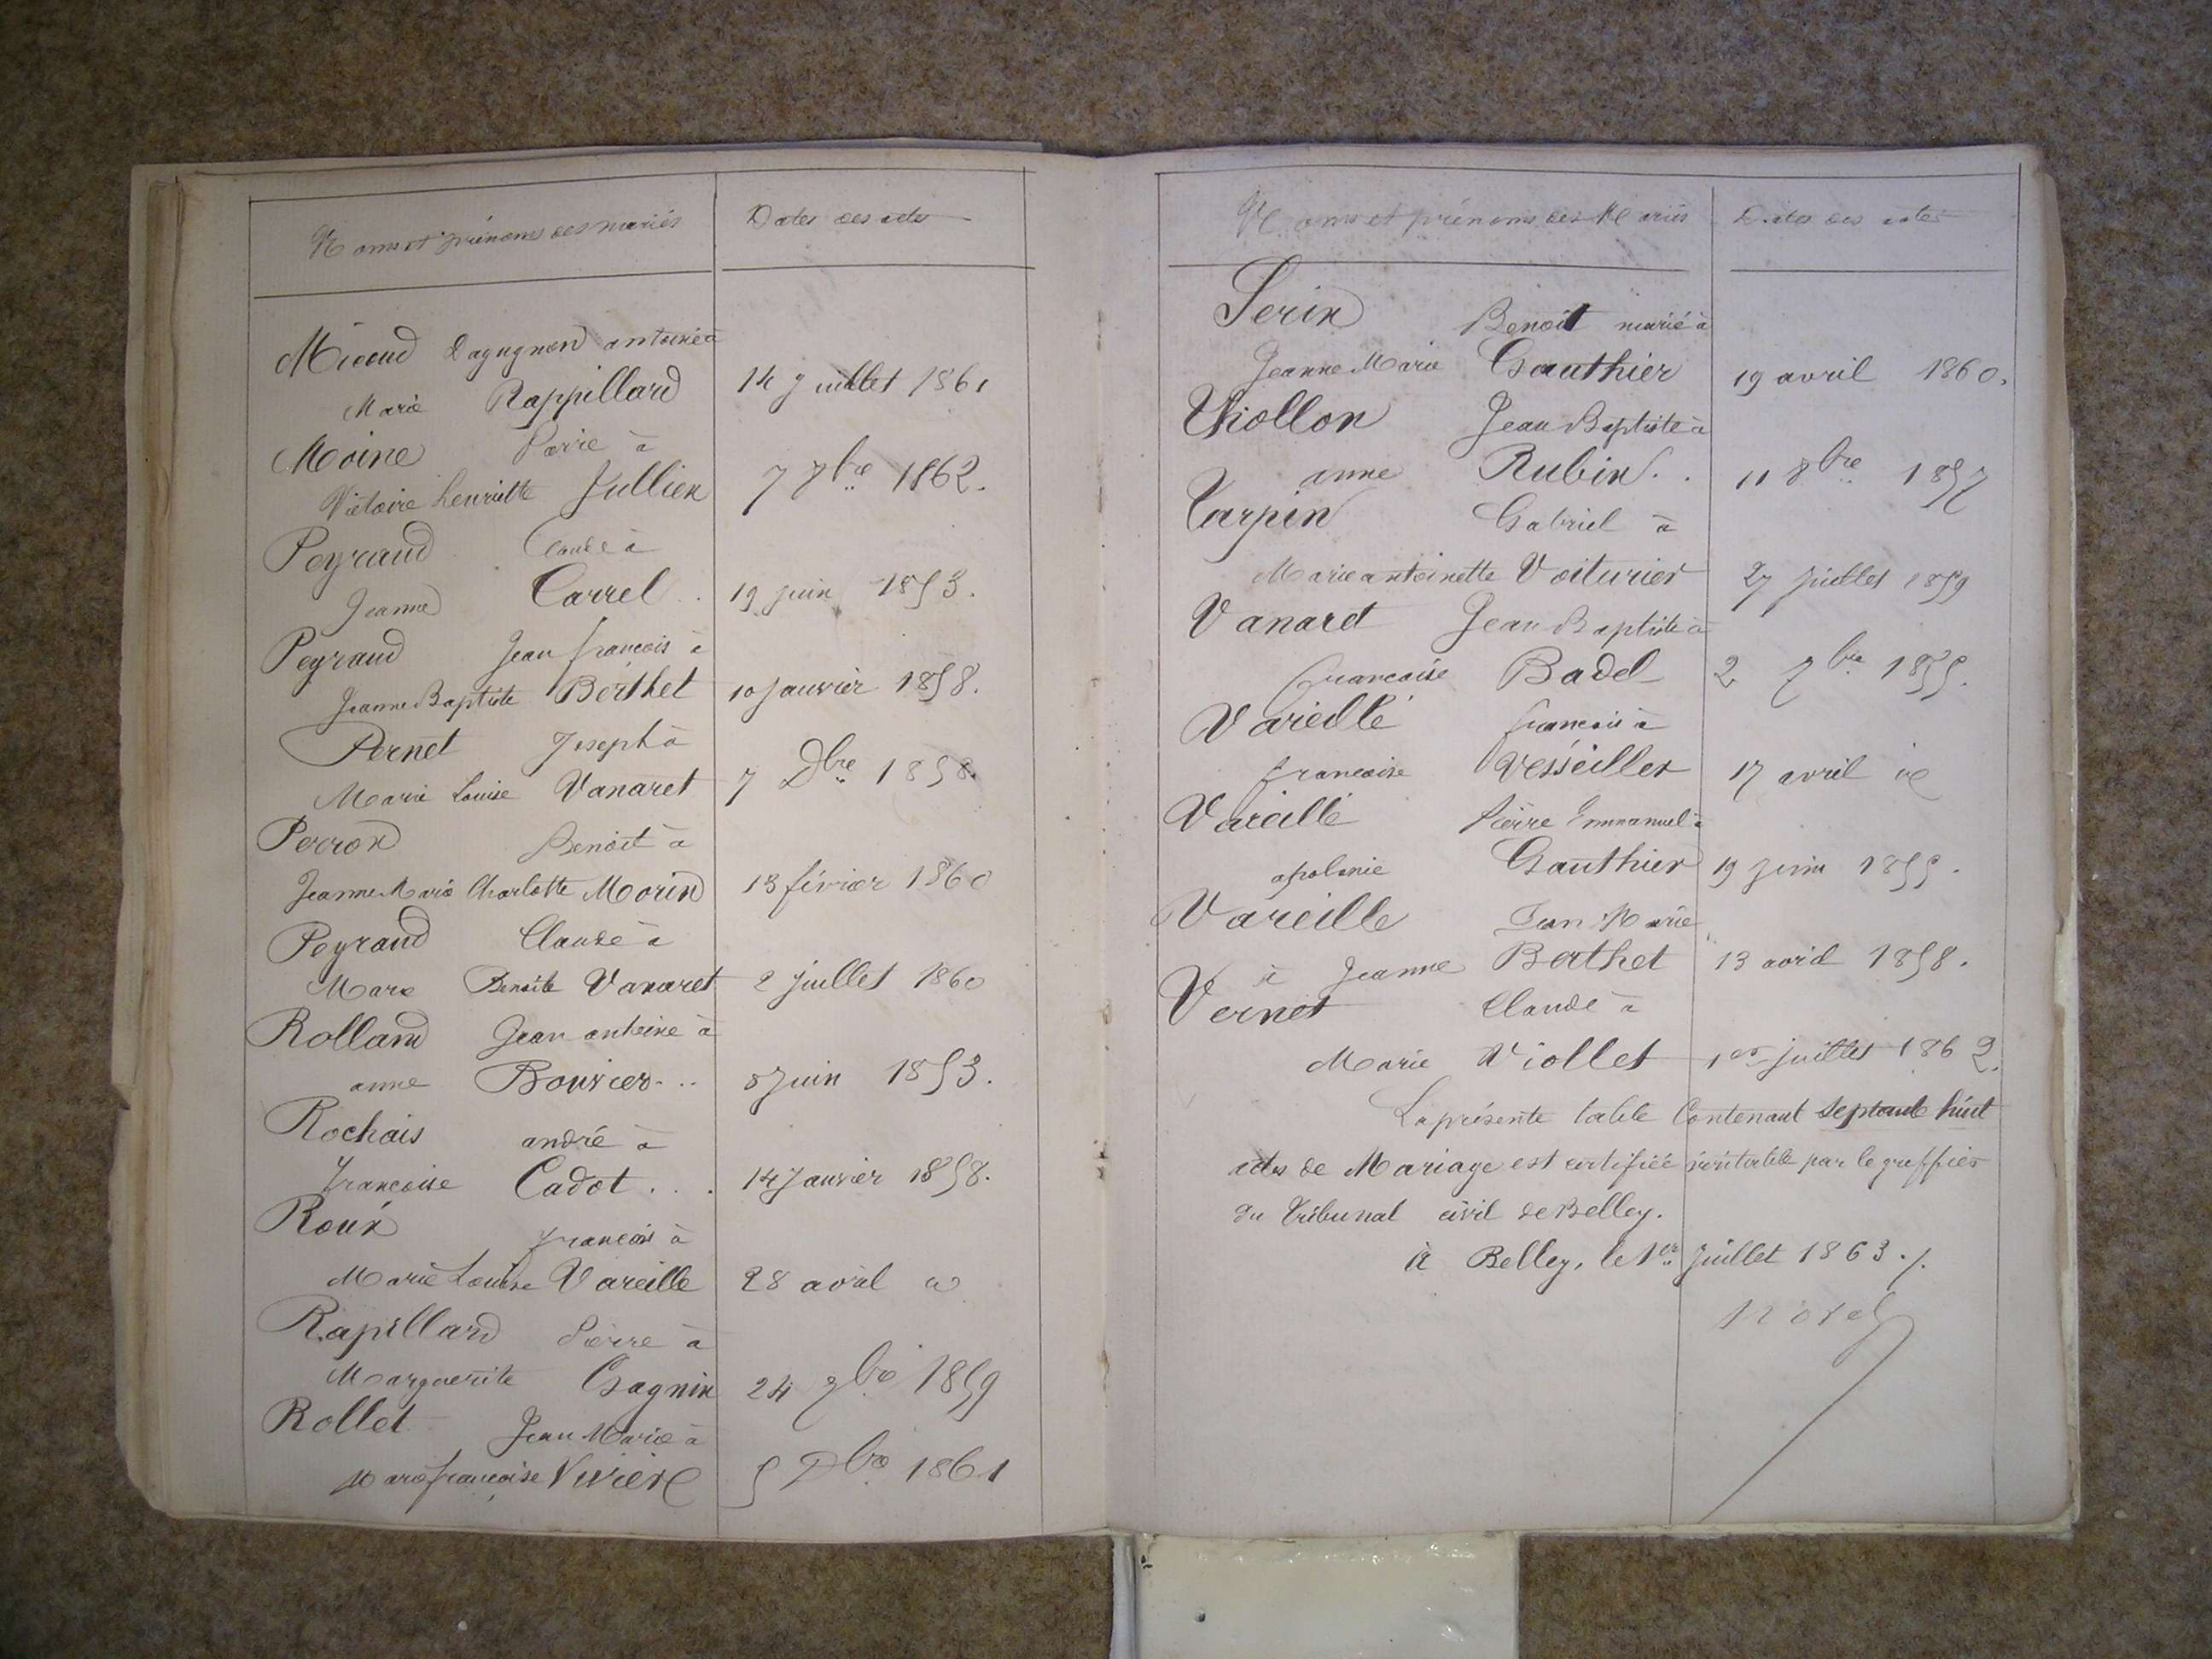 Noms et prénoms des mariés
Dates des actes
Micoud Dagugnon antoine à
Marie Rappillard 14 Juillet 1861
Moine Pierre à
Victoire henriette Jullien 7 7bre 1862.
Peyraud Claude à
Jeanne Carrel . 19 juin 1853.
Peyraud Jean françois à
Jeanne Baptiste Berthet 10 Janvier 1858.
Pernet Joseph à
Marie Louise Vanaret 7 Dbre 1858.
Perron Benoit à
Jeanne Marie Charlotte Morin 13 février 1860
Peyraud Claude à
Marie Benoite Vanaret 2 Juillet 1860
Rolland Jean antoine à
anne Bouvier ... 8 Juin 1853.
Rochais andré à
françoise Cadot . . . 14 Janvier 1858.
Roux françois à
Marie Louise Vareille 28 avril
Rapillard Pierre à
Marguerite Gagnin 24 9bre 1859
Rollet Jean Marie à
Marie françoise Vivier 5 Dbre 1861
Noms et prénoms des Mariés
Dates des actes
Serin Benoit marié à
Jeanne Marie Gauthier 19 avril 1860.
Thiollon Jean Baptiste à
anne Rubin . . 11 8bre 1857
Tarpin Gabriel à
Marie antoinette Voiturier 27 Juillet 1859
Vanaret Jean Baptiste à
françoise Badel 2 7bre 1855.
Vareille françois à
françoise 17 avril
Vareille Pierre Emmanuel à
apolonie Gauthier 19 Juin 1855.
Vareille Jean Marie
à Jeanne Berthet 13 avril 1858.
Vernet Claude à
Marie Viollet 1er juillet 1862.
La présente table Contenant septante huit
actes de Mariage est certifiée véritable par le greffier
du Tribunal civil de Belley.
à Belley, le 1er Juillet 1863 ./.